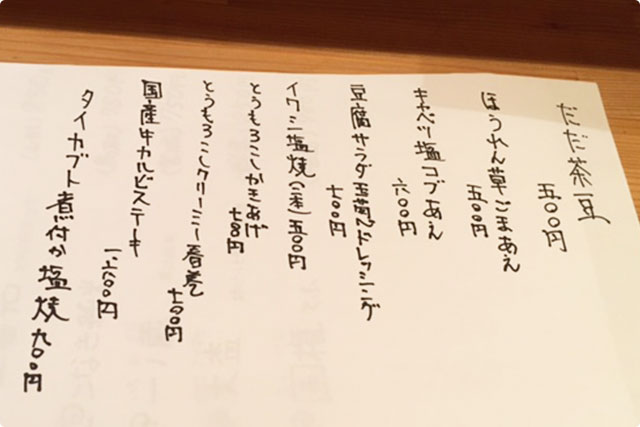 だだ茶豆
五〇〇円
ほうれん草ごまあえ
五〇〇円
キャベツ塩コブあえ
六〇〇円
豆腐サラダ 玉葱ドレッシング
七〇〇円
イワシ塩焼(一本)五〇〇円
とうもろこしかきあげ
七〇〇円
とうもろこしクリーミー春巻
七〇〇円
国産牛カルビステーキ
一、六〇〇円
タイカブト煮付か塩焼 九〇〇円